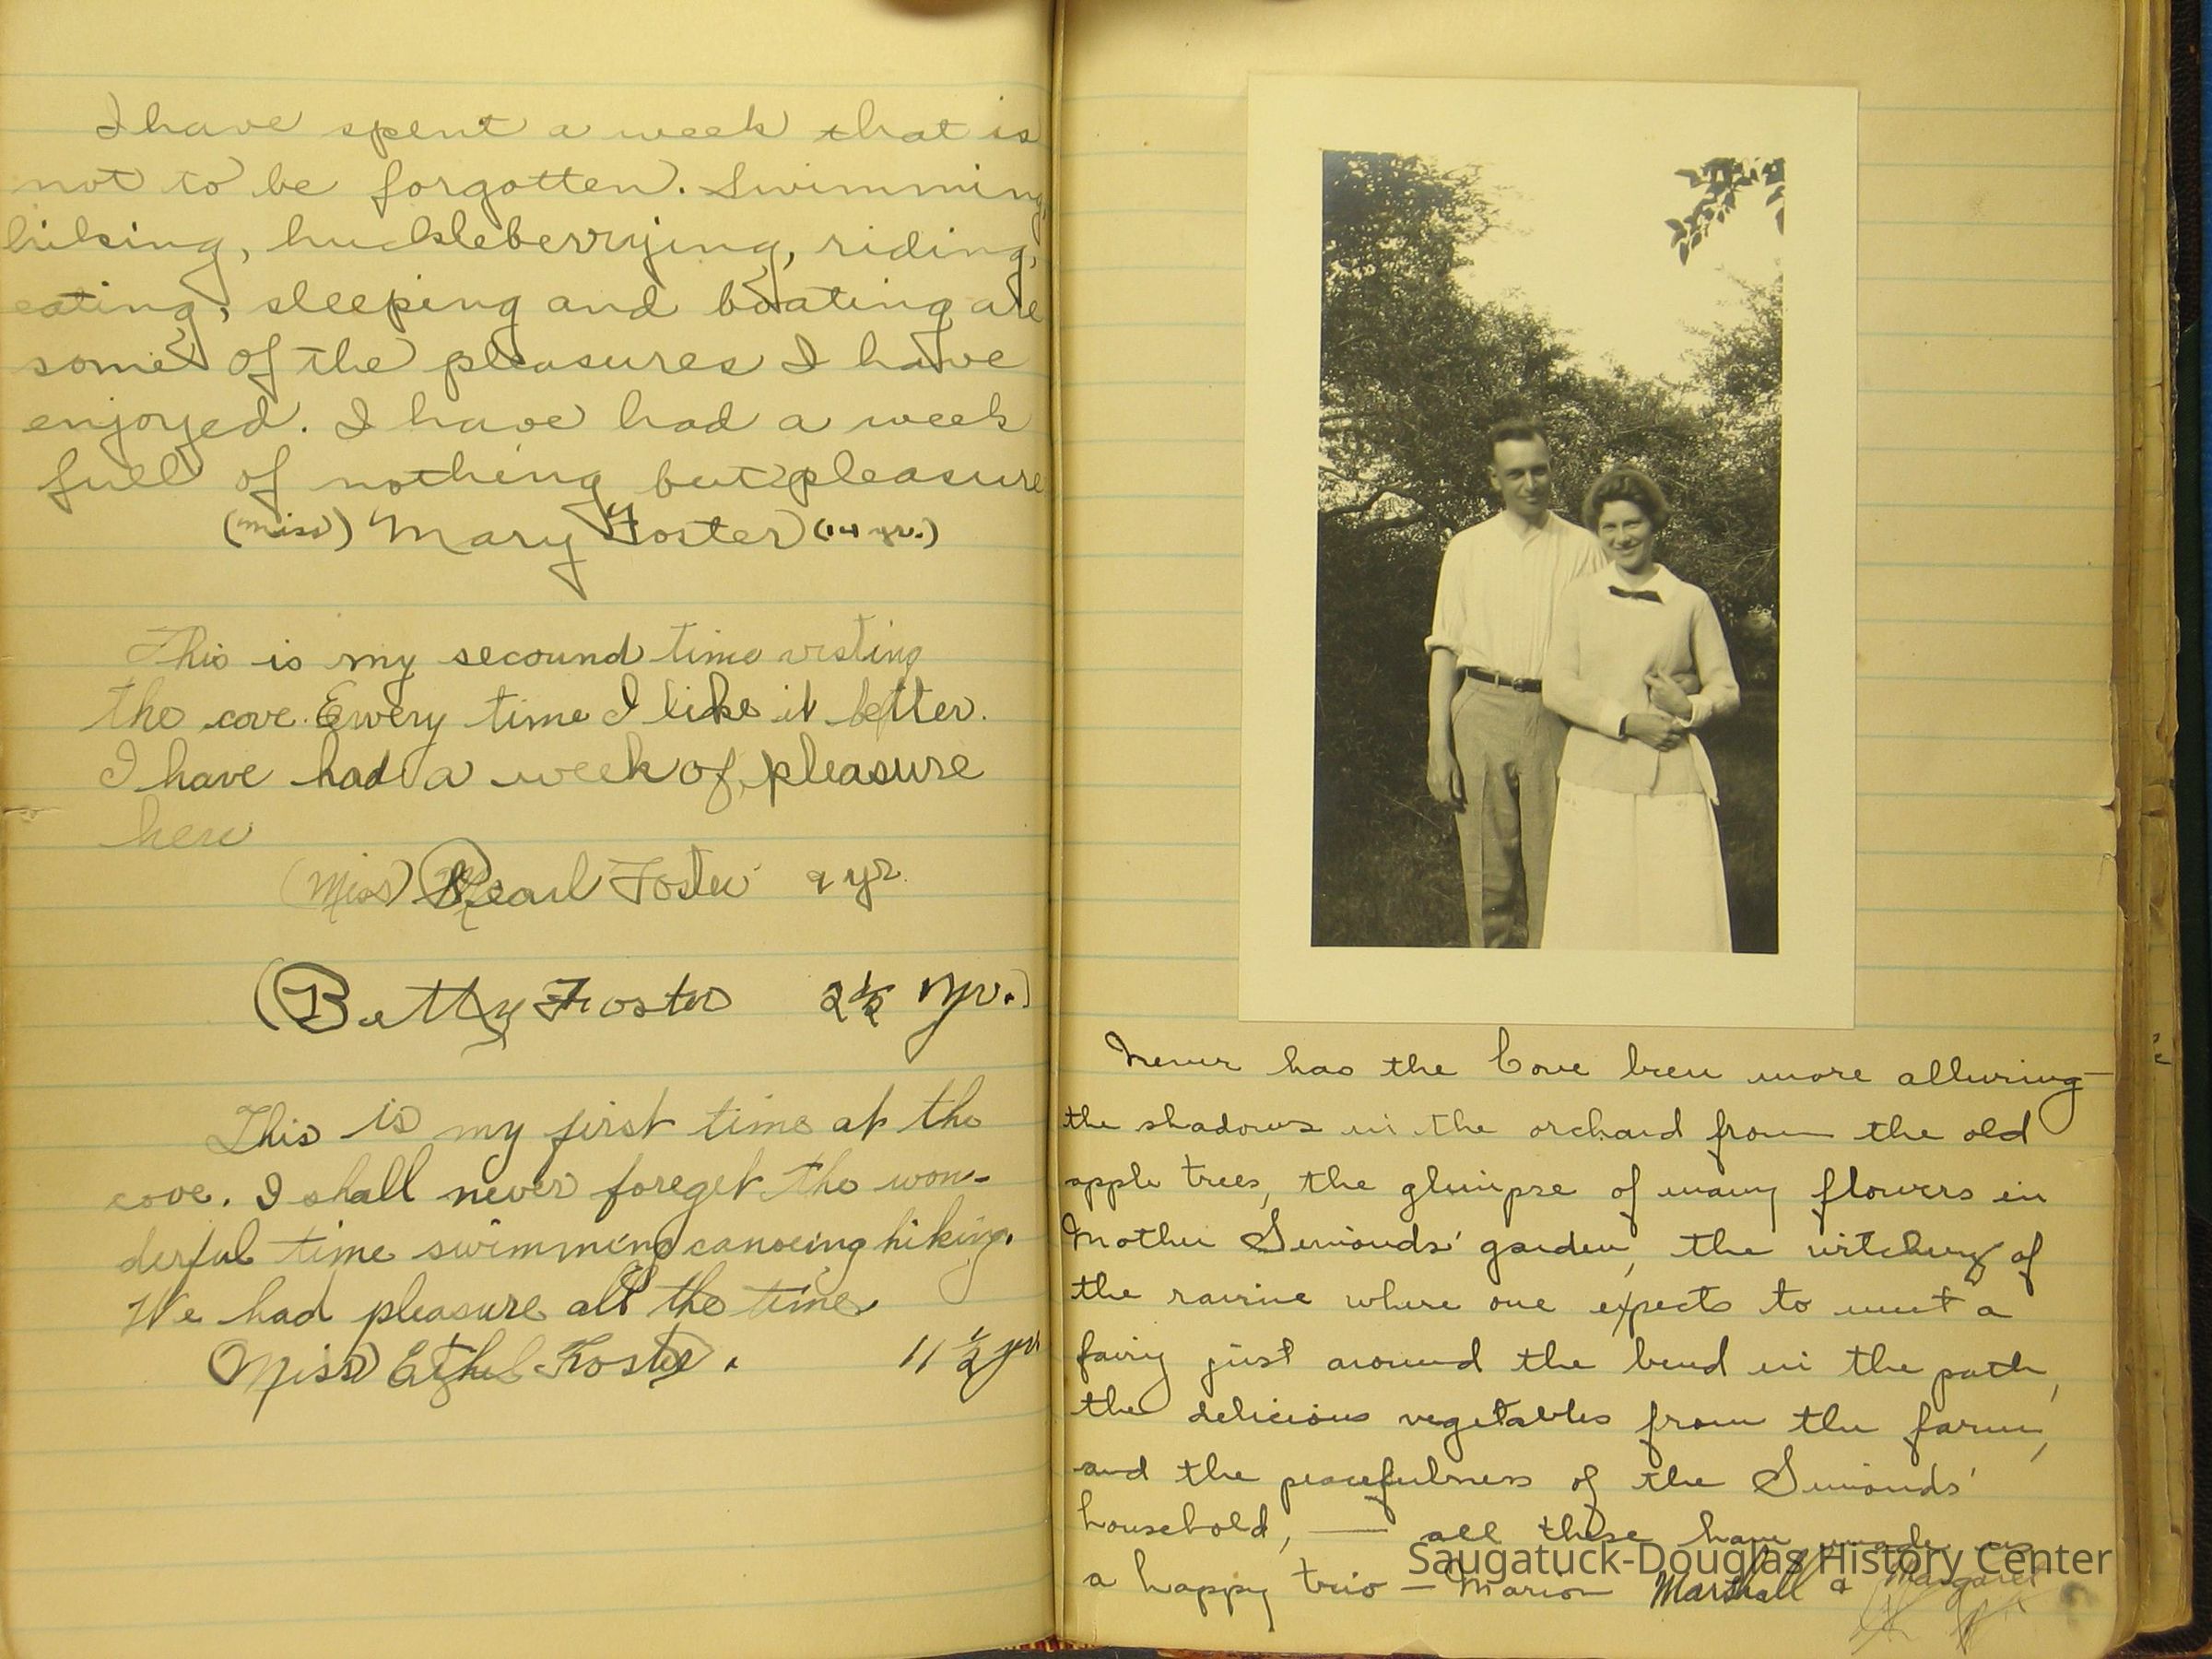 I have spent a week that is
not to be forgotten. Swimming,
hiking, huckleberrying, riding,
eating, sleeping and boating are
some of the pleasures I have
enjoyed. I have had a week
full of nothing but pleasure
(Miss) Mary Foster (14 yr.)
This is my secound time visting
the cove. Every time I like it better.
I have had a week of pleasure
here
(Miss) Pearl Foster 9 yr.
(Betty Foster 2½ yr.)
This is my first time at the
cove. I shall never foreget the won-
derful time swimming canoeing hiking.
We had pleasure all the time
Miss Ethel Foster. 11 ½ yr
Never has the Cove been more alluring—
the shadows in the orchard from the old
apple trees, the glimpse of many flowers in
Mother Simonds' garden, the witchery of
the ravine where one expects to meet a
fairy just around the bend in the path,
the delicious vegetables from the farm,
and the peacefulness of the Simonds'
household, — all these have made us
a happy trio — Marion Marshall & Margaret
Saugatuck-Douglas History Center